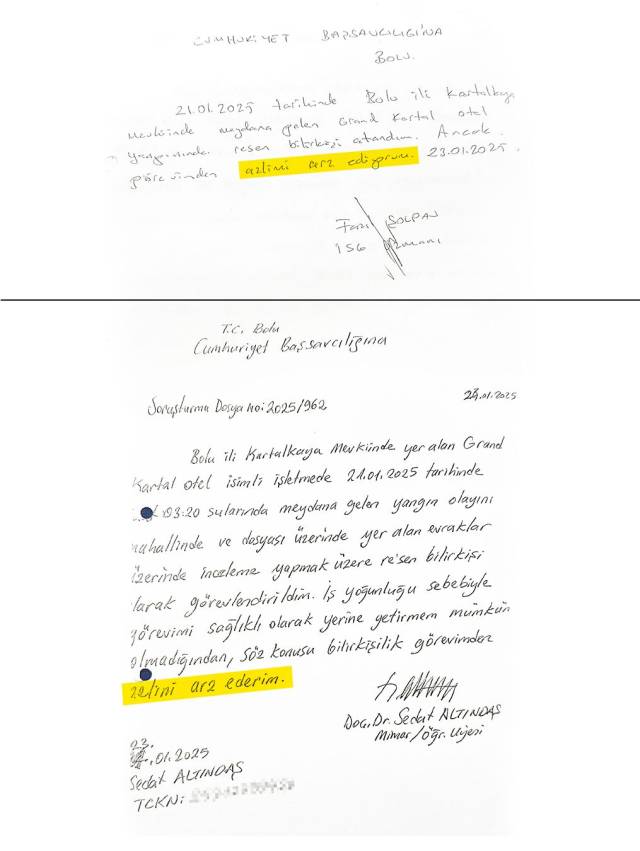 CUMHURİYET BAŞSAVCILIĞINA
BOLU.
21.01.2025 tarihinde Bolu ili Kartalkaya
Mevkiinde meydana gelen Grand Kartal otel
yangınında resen bilirkişi atandım. Ancak
görevinden azlimi arz ediyorum. 23.01.2025.
ŞOLPAN
İSG Uzmanı
T.C. Bolu
Cumhuriyet Başsavcılığına
Soruşturma Dosya no: 2025/962
23.01.2025
Bolu ili Kartalkaya Mevkiinde yer alan Grand
Kartal otel isimli işletmede 21.01.2025 tarihinde
03:20 sularında meydana gelen yangın olayını
mahallinde ve dosyası üzerinde yer alan evraklar
üzerinde inceleme yapmak üzere re'sen bilirkişi
larak görevlendirildim. İş yoğunluğu sebebiyle
görevimi sağlıklı olarak yerine getirmem mümkün
olmadığından, söz konusu bilirkişilik görevimden
azlimi arz ederim.
Doç. Dr. Sedat ALTINDAŞ
Mimar/Öğr. Üyesi
23.
.01.2025
Sedat ALTINDAŞ
TCKN: